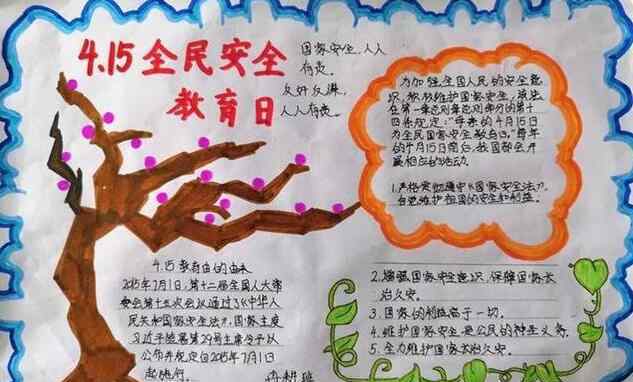 4.15全民安全
教育日
国家安全,人人
有责。
反奸反谍,
人人有责。
为加强全国人民的安全意
识,维护国家安全,该法
在第一章总则章总则部分的第十
四条规定:“每年的4月15日
为全民国家安全教育日。”每年
的4月15日前后,我国都会开
展相应的活动。
1.严格贯彻遵守《国家安全法》,
自觉维护祖国的安全和利益。
4.15教育日的由来
2015年7月1日,第十二届全国人大常
委会第十五次会议通过了《中华人
民共和国国家安全法》,国家主席
习近平签署第29号主席令予以
公布并规定自2015年7月1日
起施行。
班
2.增强国家安全意识,保障国家长
治久安。
3.国家的利益高于一切。
4.维护国家安全是公民的神圣义务。
5.全力维护国家长治久安。